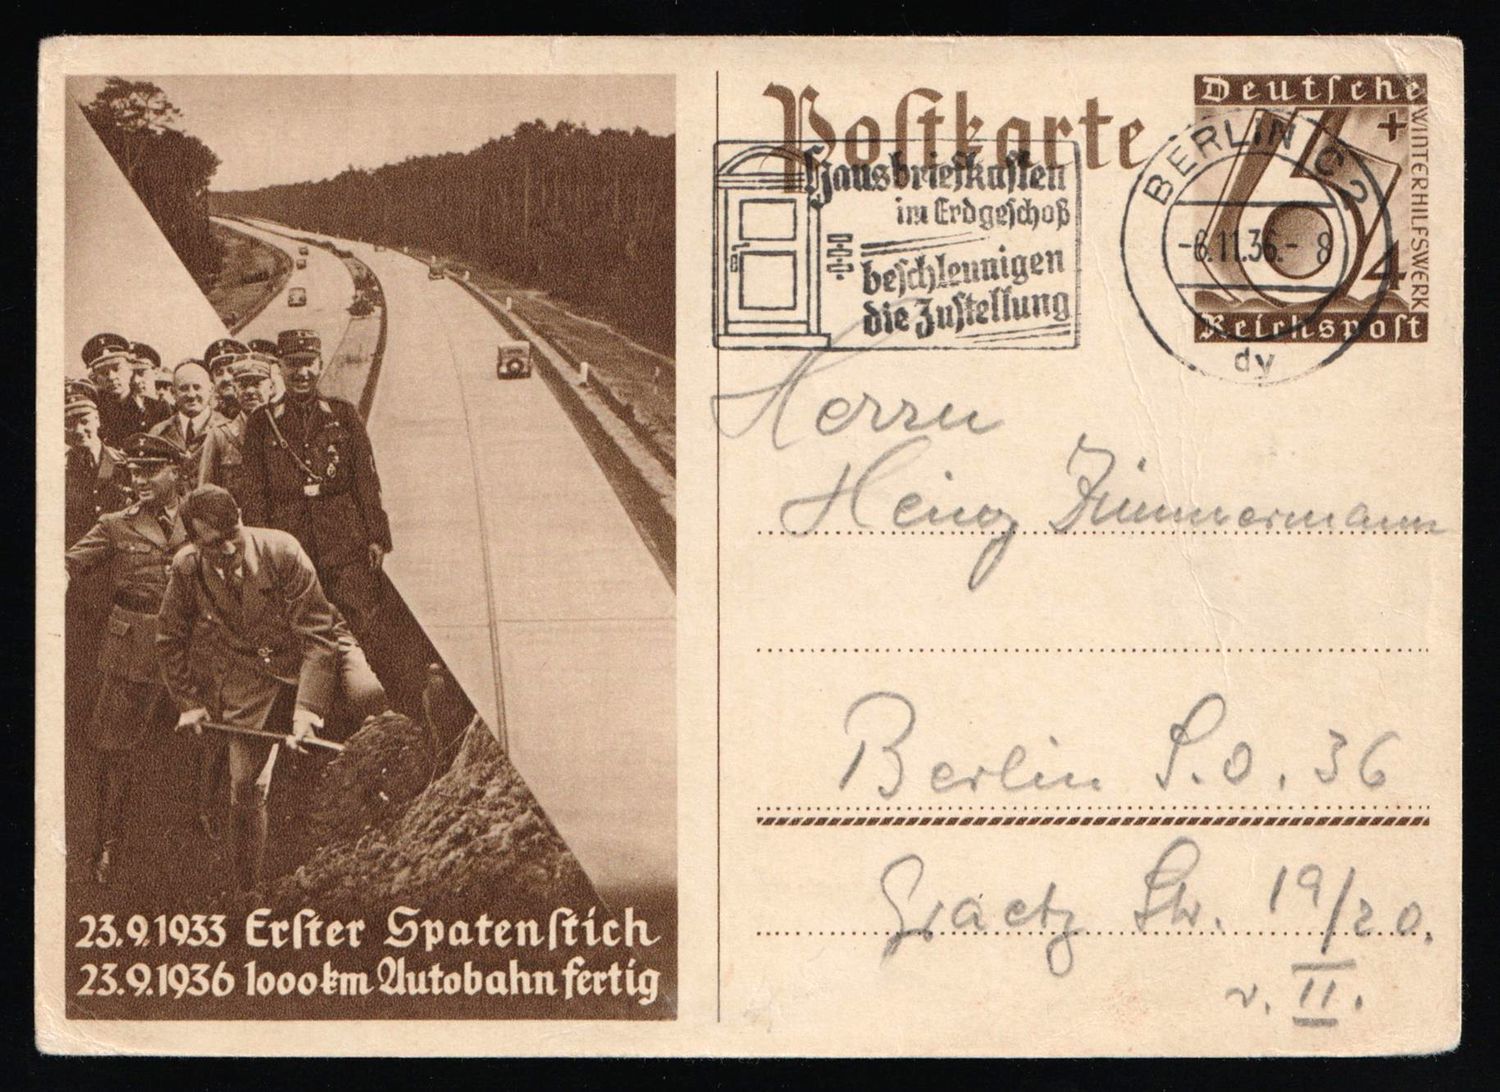 23.9.1933 Erster Spatenstich
23.9.1936 1000km Autobahn fertig
Postkarte
Hausbriefkasten
im Erdgeschoß
beschleunigen
die Zustellung
BERLIN C 2
-6.11.36.- 8
dy
Deutsche
6+4
WINTERHILFSWERK
Reichspost
Herrn
Heinz Zimmermann
Berlin S.O. 36
Graetz Str. 19/20.
v. II.